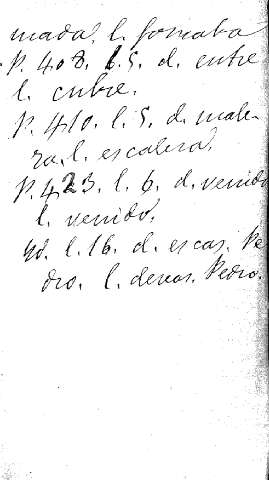 mada. l. formaba
P. 408. l. 5. d. entre
l. cubre.
P. 410. l. 5. d. male-
ra. l. escalera.
P. 423. l. 6. d. venido
l. venido.
yd. l. 16. d. es cas. Pe
dro. l. Pedro.